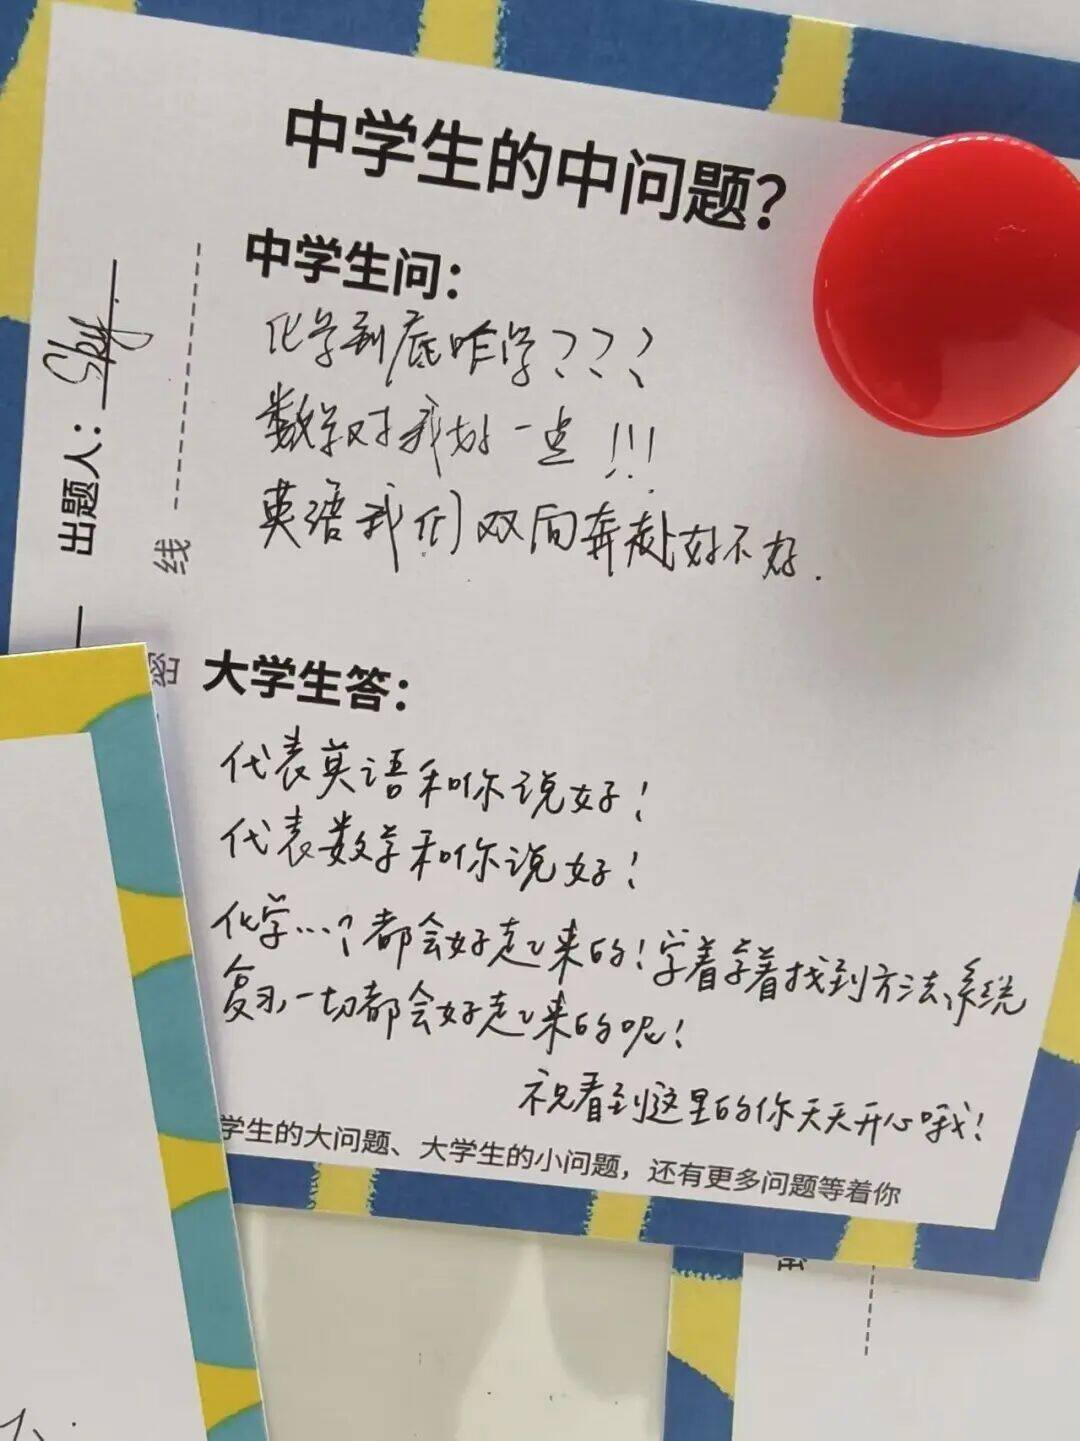 中学生的中问题?
中学生问:
化学到底咋学???
数学对我好一点!!!
英语我们双向奔赴好不好.
出题人: Sky
线
密
大学生答:
代表英语和你说好!
代表数学和你说好!
化学…? 都会好起来的!学着学着找到方法、系统
复习一切都会好起来的呢!
祝看到这里的你天天开心哦!
学生的大问题、大学生的小问题,还有更多问题等着你